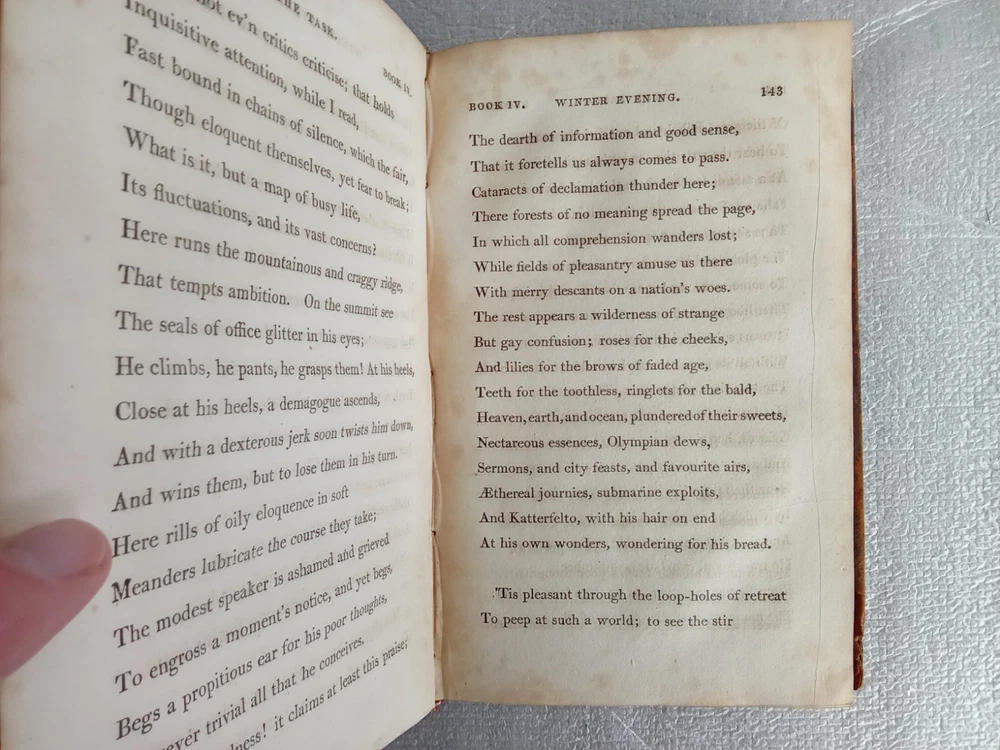 THE TASK.
BOOK IV.
not ev'n critics criticise; that holds
Inquisitive attention, while I read,
Fast bound in chains of silence, which the fair,
Though eloquent themselves, yet fear to break;
What is it, but a map of busy life,
Its fluctuations, and its vast concerns?
Here runs the mountainous and craggy ridge,
That tempts ambition. On the summit see
The seals of office glitter in his eyes;
He climbs, he pants, he grasps them! At his heels,
Close at his heels, a demagogue ascends,
And with a dexterous jerk soon twists him down,
And wins them, but to lose them in his turn.
Here rills of oily eloquence in soft
Meanders lubricate the course they take;
The modest speaker is ashamed and grieved
To engross a moment's notice, and yet begs,
Begs a propitious ear for his poor thoughts,
ever trivial all that he conceives.
it claims at least this praise;
BOOK IV. WINTER EVENING. 143
The dearth of information and good sense,
That it foretells us always comes to pass.
Cataracts of declamation thunder here;
There forests of no meaning spread the page,
In which all comprehension wanders lost;
While fields of pleasantry amuse us there
With merry descants on a nation's woes.
The rest appears a wilderness of strange
But gay confusion; roses for the cheeks,
And lilies for the brows of faded age,
Teeth for the toothless, ringlets for the bald,
Heaven, earth, and ocean, plundered of their sweets,
Nectareous essences, Olympian dews,
Sermons, and city feasts, and favourite airs,
Æthereal journies, submarine exploits,
And Katterfelto, with his hair on end
At his own wonders, wondering for his bread.
'Tis pleasant through the loop-holes of retreat
To peep at such a world; to see the stir